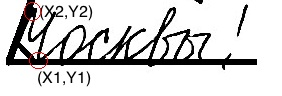 (X2,Y2)
Москвы!
(X1,Y1)